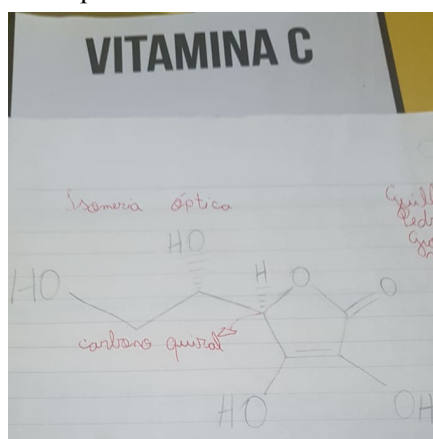 VITAMINA C
Isomeria óptica
HO
HO
H
O
O
carbono quiral
HO
OH